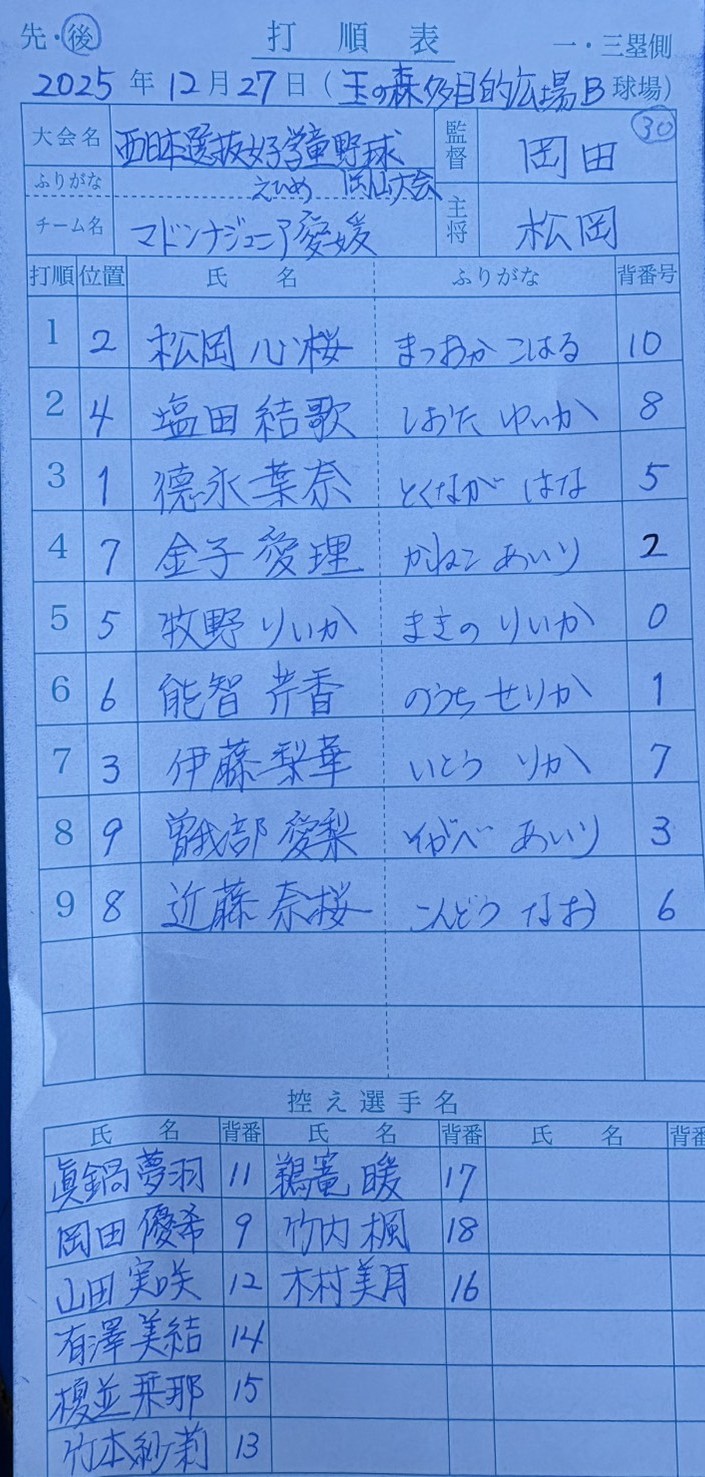 先・後 打順表 一・三塁側
2025年12月27日(玉の森多目的広場B球場)
大会名 西日本選抜女子学童野球 監督 岡田 30
ふりがな えひめ 岡山大会
チーム名 マドンナジュニア愛媛 主将 松岡
打順 位置 氏名 ふりがな 背番号
1 2 松岡 心桜 まつおか こはる 10
2 4 塩田 結歌 しおた ゆいか 8
3 1 德永 葉奈 とくなが はな 5
4 7 金子 愛理 かねこ あいり 2
5 5 牧野 りいか まきの りいか 0
6 6 能智 芹香 のうち せりか 1
7 3 伊藤 梨華 いとう りか 7
8 9 曽我部 愛梨 そがべ あいり 3
9 8 近藤 奈桜 こんどう なお 6
控え選手名
氏名 背番 氏名 背番 氏名 背番
眞鍋 夢羽 11 鵜篭 暖 17
岡田 優希 9 竹内 楓 18
山田 実咲 12 木村 美月 16
有澤 美結 14
榎並 栞耶 15
竹本 紗莉 13